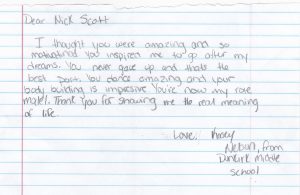 Dear Nick Scott
I thought you were amazing and so
motivational you inspired me to go after my
dreams. You never gave up and thats the
best part. You dance amazing and your
body building is impresive You're now my role
model. Thank you for showing me the real meaning
of life.
Love,
from
Dunkirk Middle
school